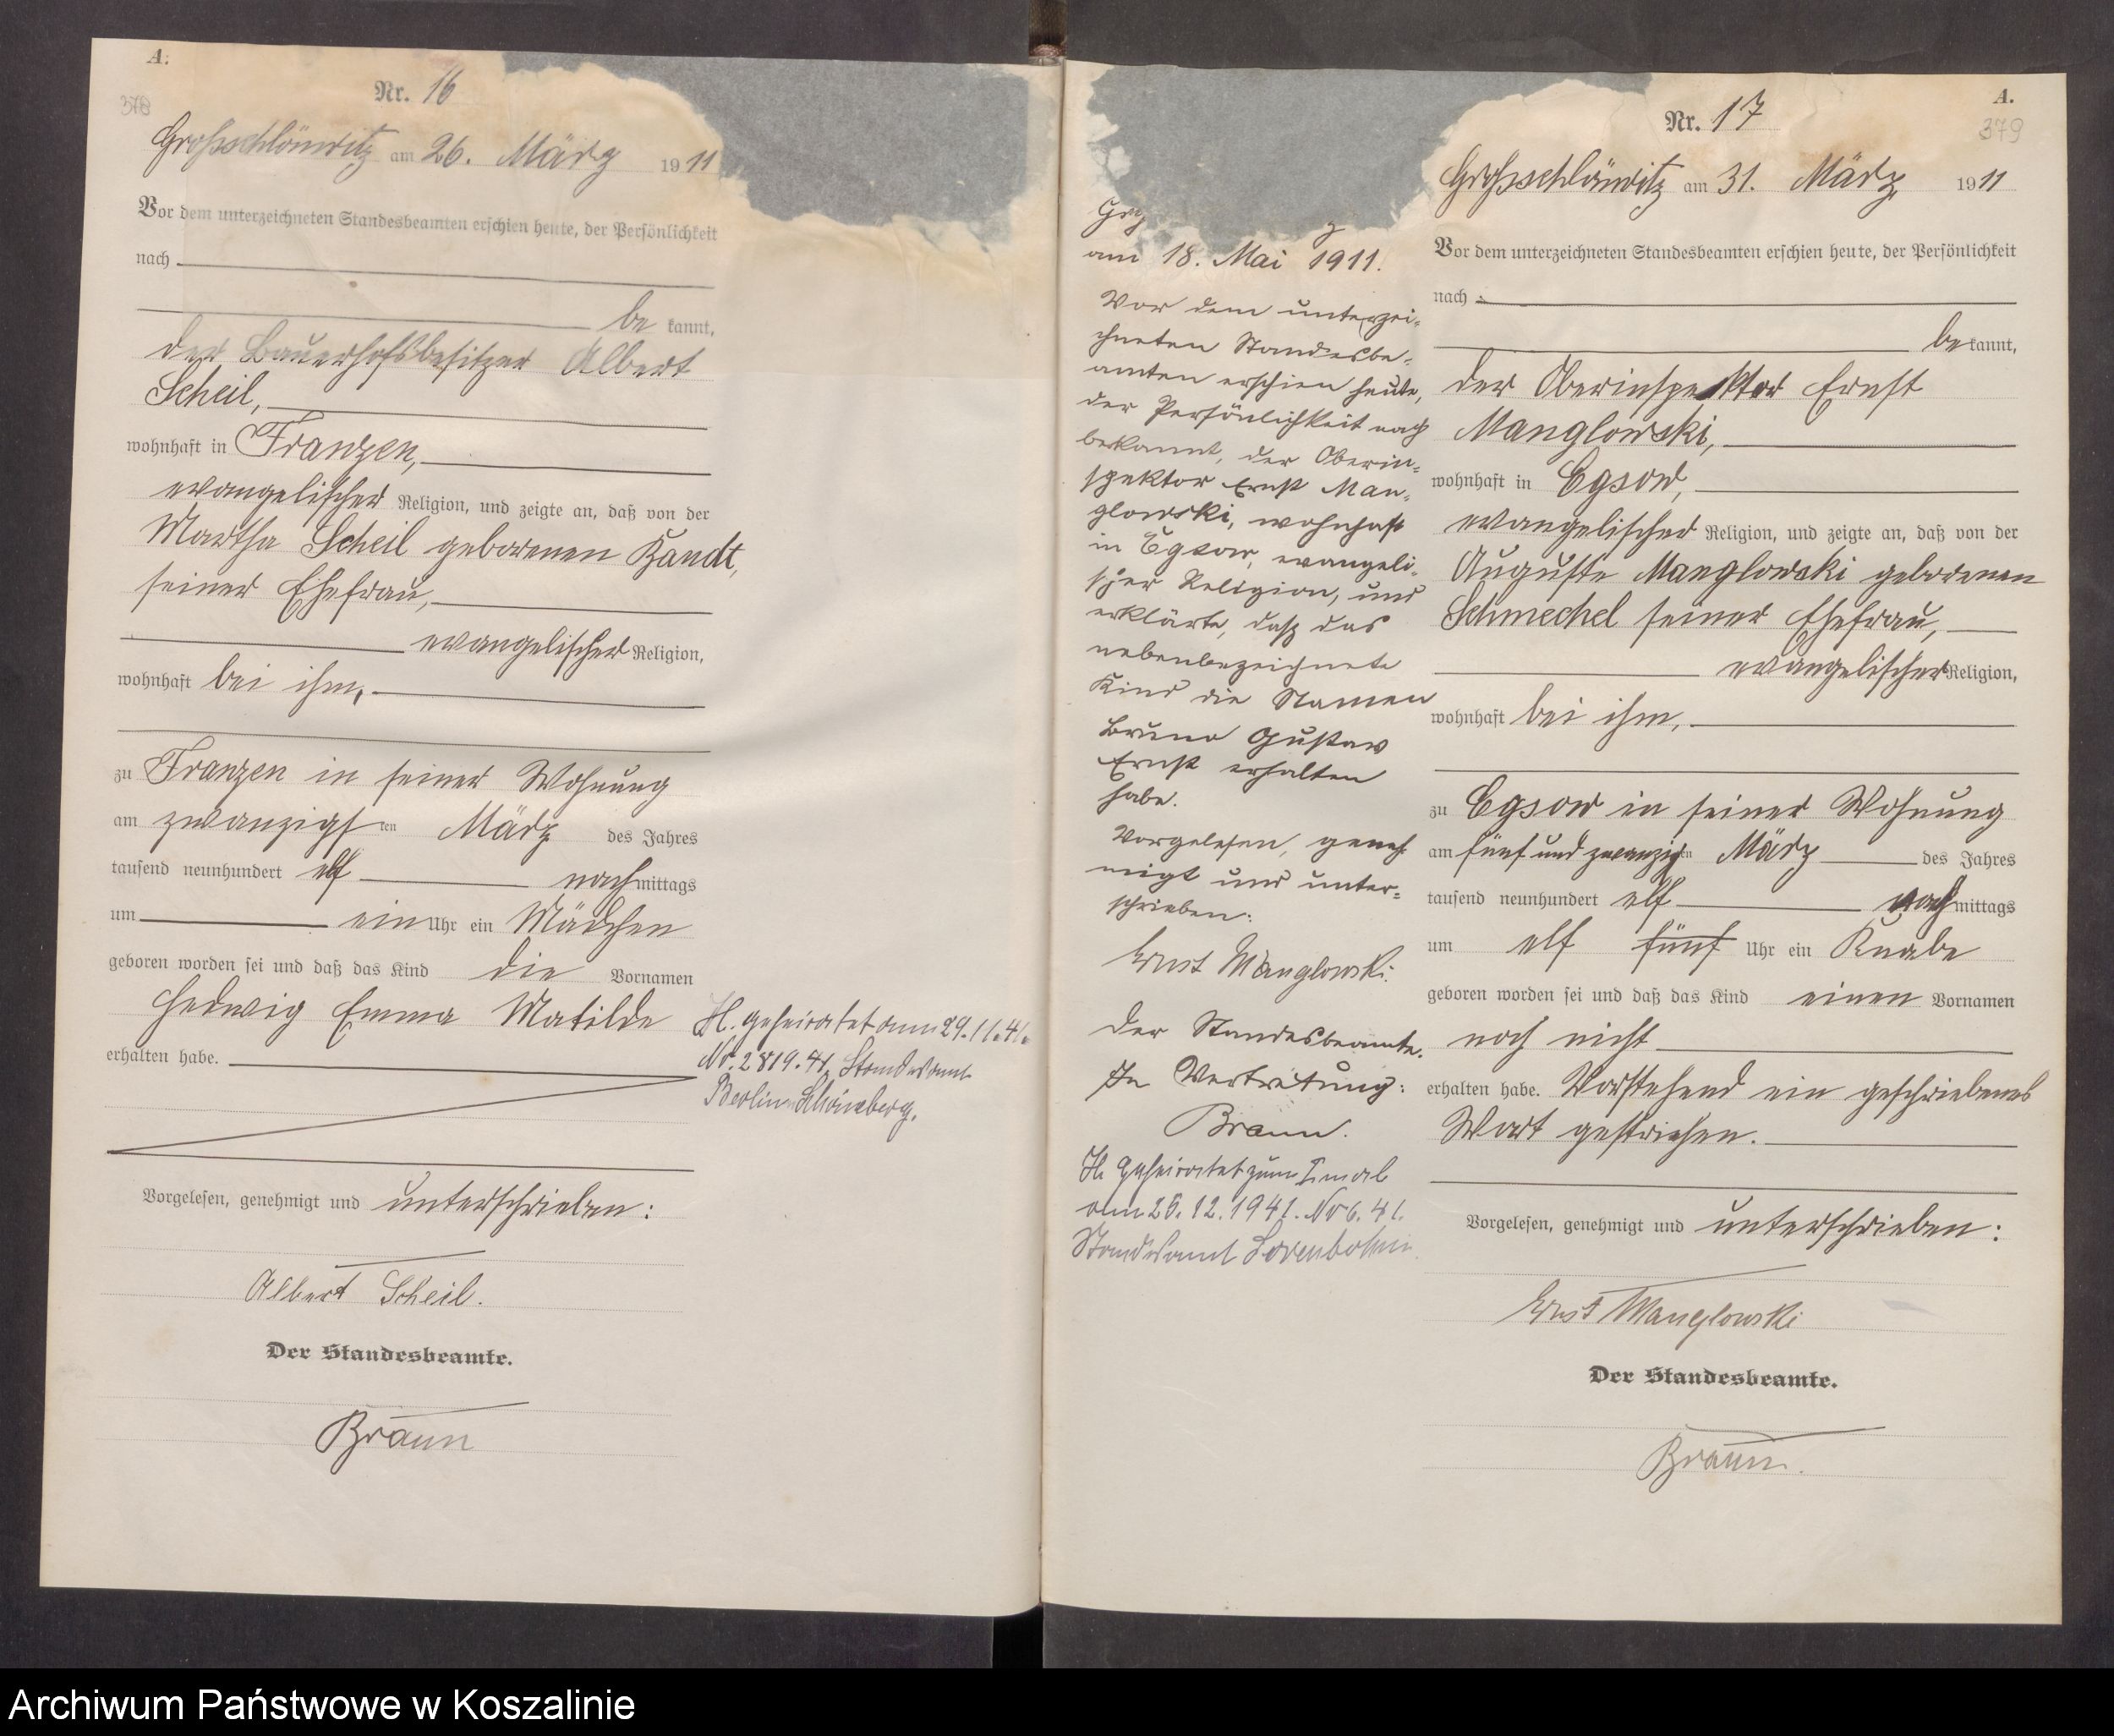 A.
378
Nr. 16
Großschlönwitz am 26. März 1911
Vor dem unterzeichneten Standesbeamten erschien heute, der Persönlichkeit
nach
be kannt,
der Bauerhofsbesitzer Albert
Scheil,
wohnhaft in Franzen,
evangelischer Religion, und zeigte an, daß von der
Martha Scheil geborenen Kandt,
seiner Ehefrau,
evangelischer Religion,
wohnhaft bei ihm,
zu Franzen in seiner Wohnung
am zwanzigsten März des Jahres
tausend neunhundert elf nachmittags
um ein Uhr ein Mädchen
geboren worden sei und daß das Kind die Vornamen
Hedwig Emma Matilde
erhalten habe.
Vorgelesen, genehmigt und unterschrieben:
Albert Scheil.
Der Standesbeamte.
Braun
H. geheiratet am 29.11.41.
Nr. 2819.41. Standesamt
Berlin-Schöneberg.
am 18. Mai 1911.
Vor dem unterzei-
chneten Standesbe-
amten erschien heute,
der Persönlichkeit nach
bekannt, der Oberin-
spektor Ernst Man-
glowski, wohnhaft
in Egsow, evangeli-
scher Religion, und
erklärte, dasz das
nebenbezeichnete
Kind die Namen
Bruno Gustav
Ernst erhalten
habe.
Vorgelesen, geneh-
migt und unter-
schrieben:
Ernst Manglowski.
Der Standesbeamte.
In Vertretung:
Braun.
H. geheiratet zum I. mal
am 25.12.1941. Nr 6.41.
Standesamt
A.
379
Nr. 17
Großschlönwitz am 31. März 1911
Vor dem unterzeichneten Standesbeamten erschien heute, der Persönlichkeit
nach
be kannt,
der Oberinspektor Ernst
Manglowski,
wohnhaft in Egsow,
evangelischer Religion, und zeigte an, daß von der
Auguste Manglowski geborenen
Schmechel seiner Ehefrau,
evangelischer Religion,
wohnhaft bei ihm,
zu Egsow in seiner Wohnung
am fünf und zwanzigsten März des Jahres
tausend neunhundert elf nachmittags
um elf fünf Uhr ein Knabe
geboren worden sei und daß das Kind einen Vornamen
noch nicht
erhalten habe. Vorstehend ein geschriebenes
Wort gestrichen.
Vorgelesen, genehmigt und unterschrieben:
Ernst Manglowski
Der Standesbeamte.
Braun.
Archiwum Państwowe w Koszalinie